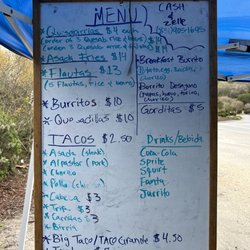 MENU
CASH
&
ZELLE
* Quesabirrias $4 each
* Asada Fries $14
* Flautas $13
(5 Flautas, rice & beans)
* Burritos $10
* Quesadillas $10
TACOS $2.50
* Asada (steak)
* Al pastor (pork)
* Chorizo
* Pollo (chicken)
* Cabeza $3
* Tripa $3
* Carnitas $3
* Birria
* Big Taco/Taco Grande $4.50
* Breakfast Burrito
(Potatoes, bacon,
chorizo)
Burrito Desayuno
(Papas, huevo, tocino,
chorizo)
Gorditas $5
Drinks/Bebida
Coca-Cola
Sprite
Squirt
Fanta
Jarrito